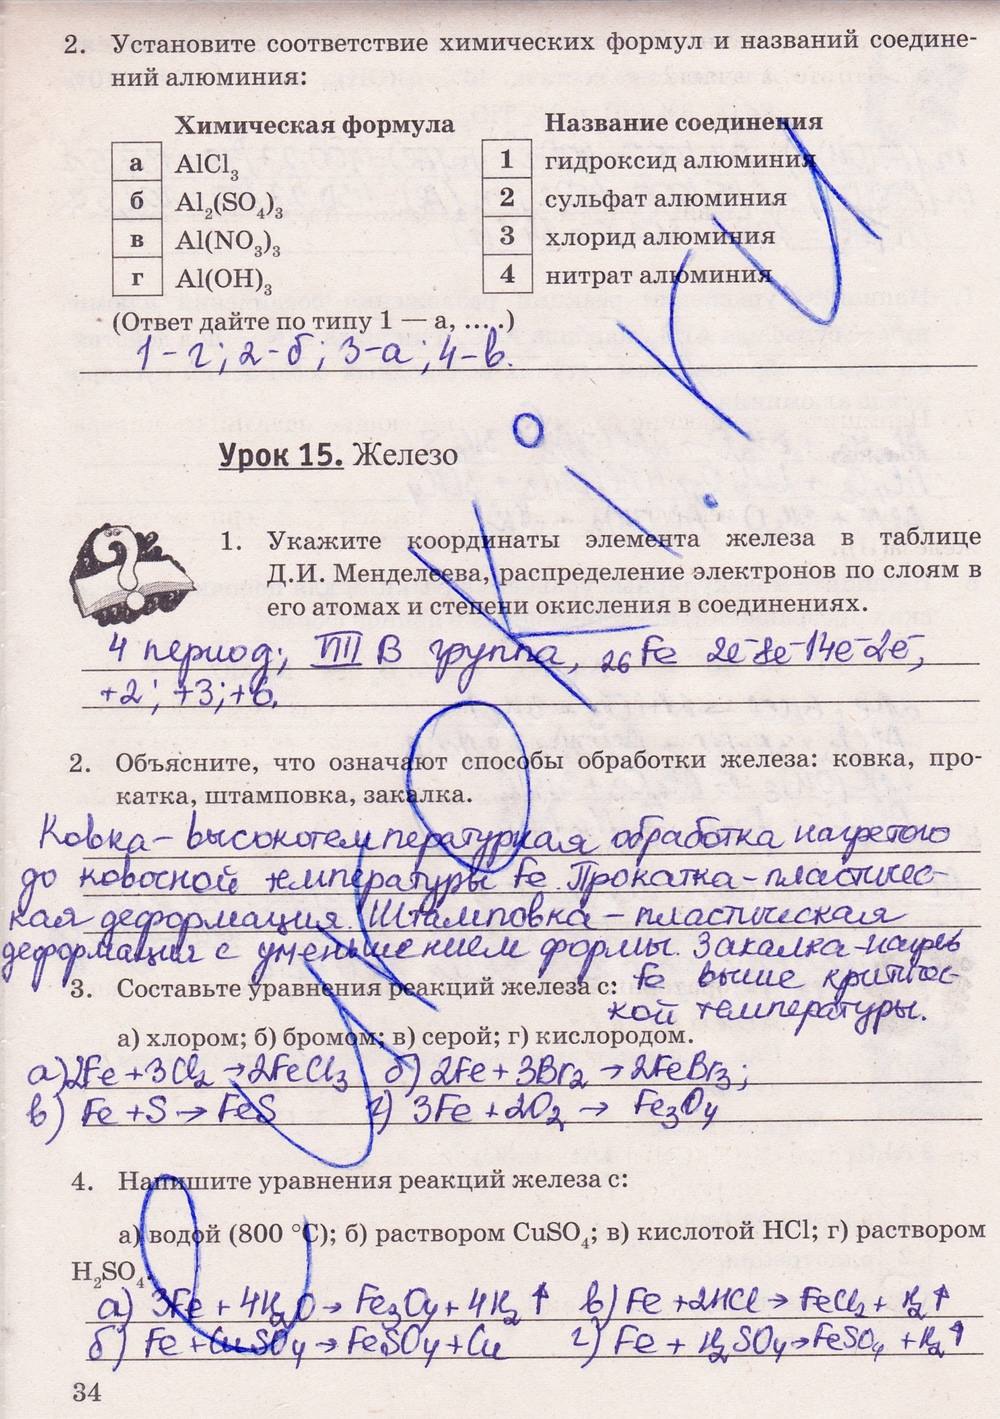 2. Установите соответствие химических формул и названий соедине-
ний алюминия:
Химическая формула
а AlCl₃
б Al₂(SO₄)₃
в Al(NO₃)₃
г Al(OH)₃
Название соединения
1 гидроксид алюминия
2 сульфат алюминия
3 хлорид алюминия
4 нитрат алюминия
(Ответ дайте по типу 1 — а, .....)
1-г; 2-б; 3-а; 4-в.
Урок 15. Железо
1. Укажите координаты элемента железа в таблице
Д.И. Менделеева, распределение электронов по слоям в
его атомах и степени окисления в соединениях.
4 период; В группа, ₂₆Fe 2e⁻8e⁻14e⁻2e⁻,
+2; +3; +6.
2. Объясните, что означают способы обработки железа: ковка, про-
катка, штамповка, закалка.
Ковка - высокотемпературная обработка нагретого
до ковочной температуры Fe. Прокатка - пластичес-
кая деформация. Штамповка - пластическая
деформация с уменьшением формы. Закалка - нагрев
Fe выше критичес-
кой температуры.
3. Составьте уравнения реакций железа с:
а) хлором; б) бромом; в) серой; г) кислородом.
а) 2Fe + 3Cl₂ → 2FeCl₃ б) 2Fe + 3Br₂ → 2FeBr₃;
в) Fe + S → FeS г) 3Fe + 2O₂ → Fe₃O₄
4. Напишите уравнения реакций железа с:
а) водой (800 °С); б) раствором CuSO₄; в) кислотой HCl; г) раствором
H₂SO₄.
а) 3Fe + 4H₂O → Fe₃O₄ + 4H₂↑ в) Fe + 2HCl → FeCl₂ + H₂↑
б) Fe + CuSO₄ → FeSO₄ + Cu г) Fe + H₂SO₄ → FeSO₄ + H₂↑
34